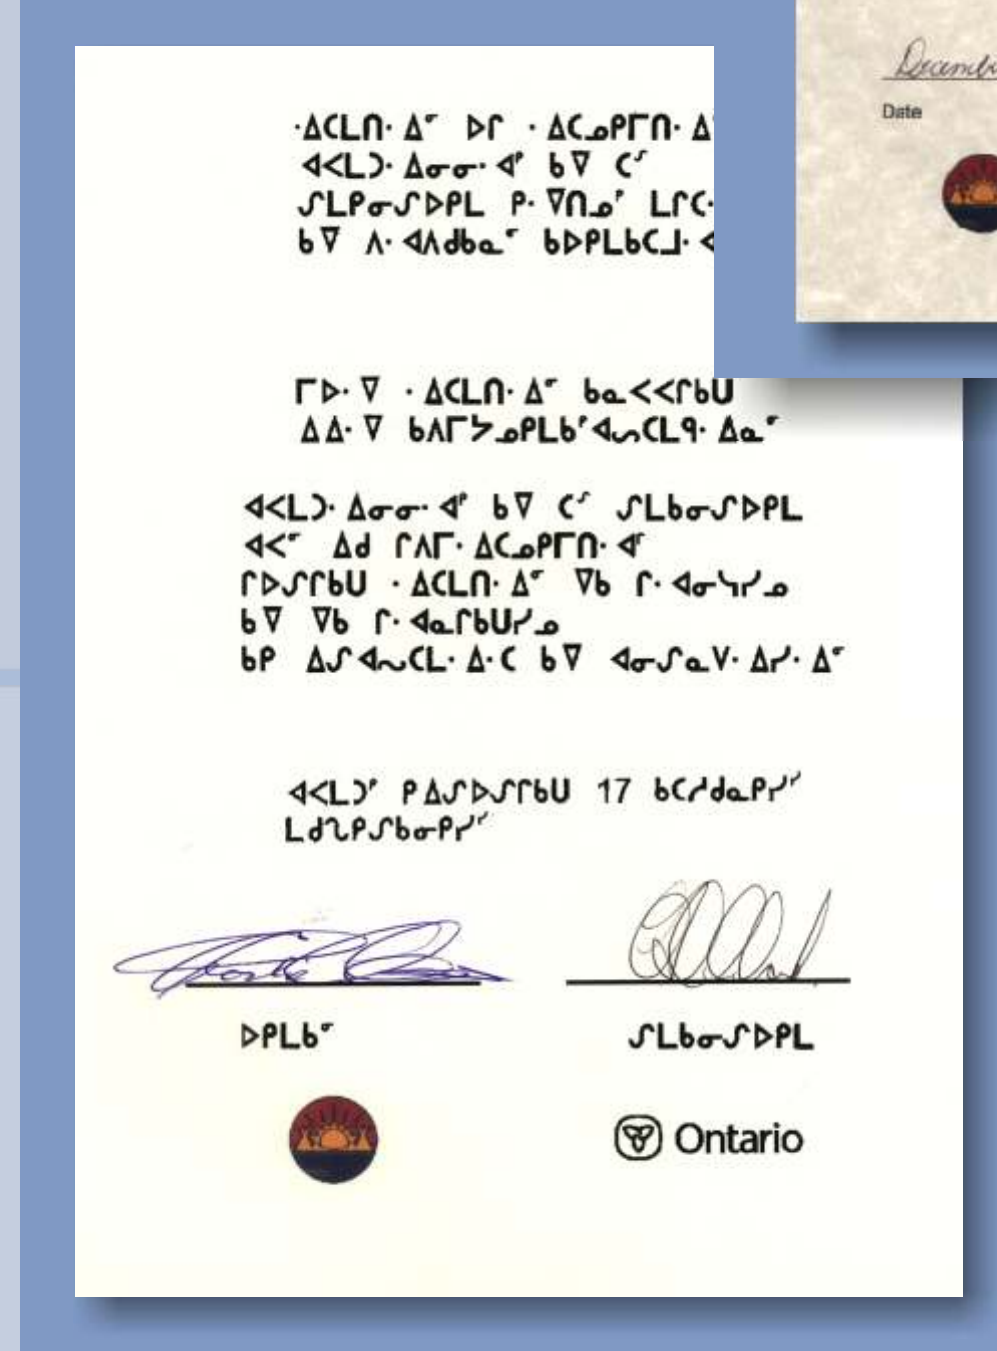 Decemb
Date
·ᐃᑕᒪᑎ· ᐃᐡ ᐅᒋ · ᐃᑕᓄᑭᒥᑎ· ᐃ
ᐊᐸᒪᑐ· ᐃᓂᓂ· ᐊᐠ ᑲ ᐁ ᑕᔆ
ᔑᒪᑭᓂᔑᐅᑭᒪ ᑭ· ᐁᑎᓄ ᒪᒋᑕ·
ᑲ ᐁ ᐱ· ᐊᐱᑯᑲᓇᐡ ᑲᐅᑭᒪᑲᑕᒧ·
ᒥᐅ· ᐁ · ᐃᑕᒪᑎ· ᐃᐡ ᑲᓇᐸᐸᒋᑲᑌ
ᐃᐃ· ᐁ ᑲᐱᒥᔭᓄᑭᒪᑲᐠᐊᔕᑕᒪᑫ· ᐃᓇᐡ
ᐊᐸᒪᑐ· ᐃᓂᓂ· ᐊᐠ ᑲ ᐁ ᑕᔆ ᔑᒪᑲᓂᔑᐅᑭᒪ
ᐊᐸᐡ ᐃᑯ ᒋᐱᒥ· ᐃᑕᓄᑭᒥᑎ· ᐊᐨ
ᒋᐅᔑᒋᑲᑌ · ᐃᑕᒪᑎ· ᐃᐡ ᐁᑲ ᒋ· ᐊᓂᓭᓯᓄ
ᑲ ᐁ ᐁᑲ ᒋ· ᐊᓇᒋᑲᑌᓯᓄ
ᑲᑭ ᐃᔑᐊᔕᑕᒪ· ᐃ· ᑕ ᑲ ᐁ ᐊᓂᔑᓇᐯ· ᐃᓯ· ᐃᐡ
ᐊᐸᒪᑐᐠ ᑭᐃᔑᐅᔑᒋᑲᑌ 17 ᑲᑕᓱᑯᓇᑭᓯᐨ
ᒪᑯᔐᑭᔑᑲᓂᑭᓯᐨ
ᐅᑭᒪᑲᐡ
ᔑᒪᑲᓂᔑᐅᑭᒪ
Ontario